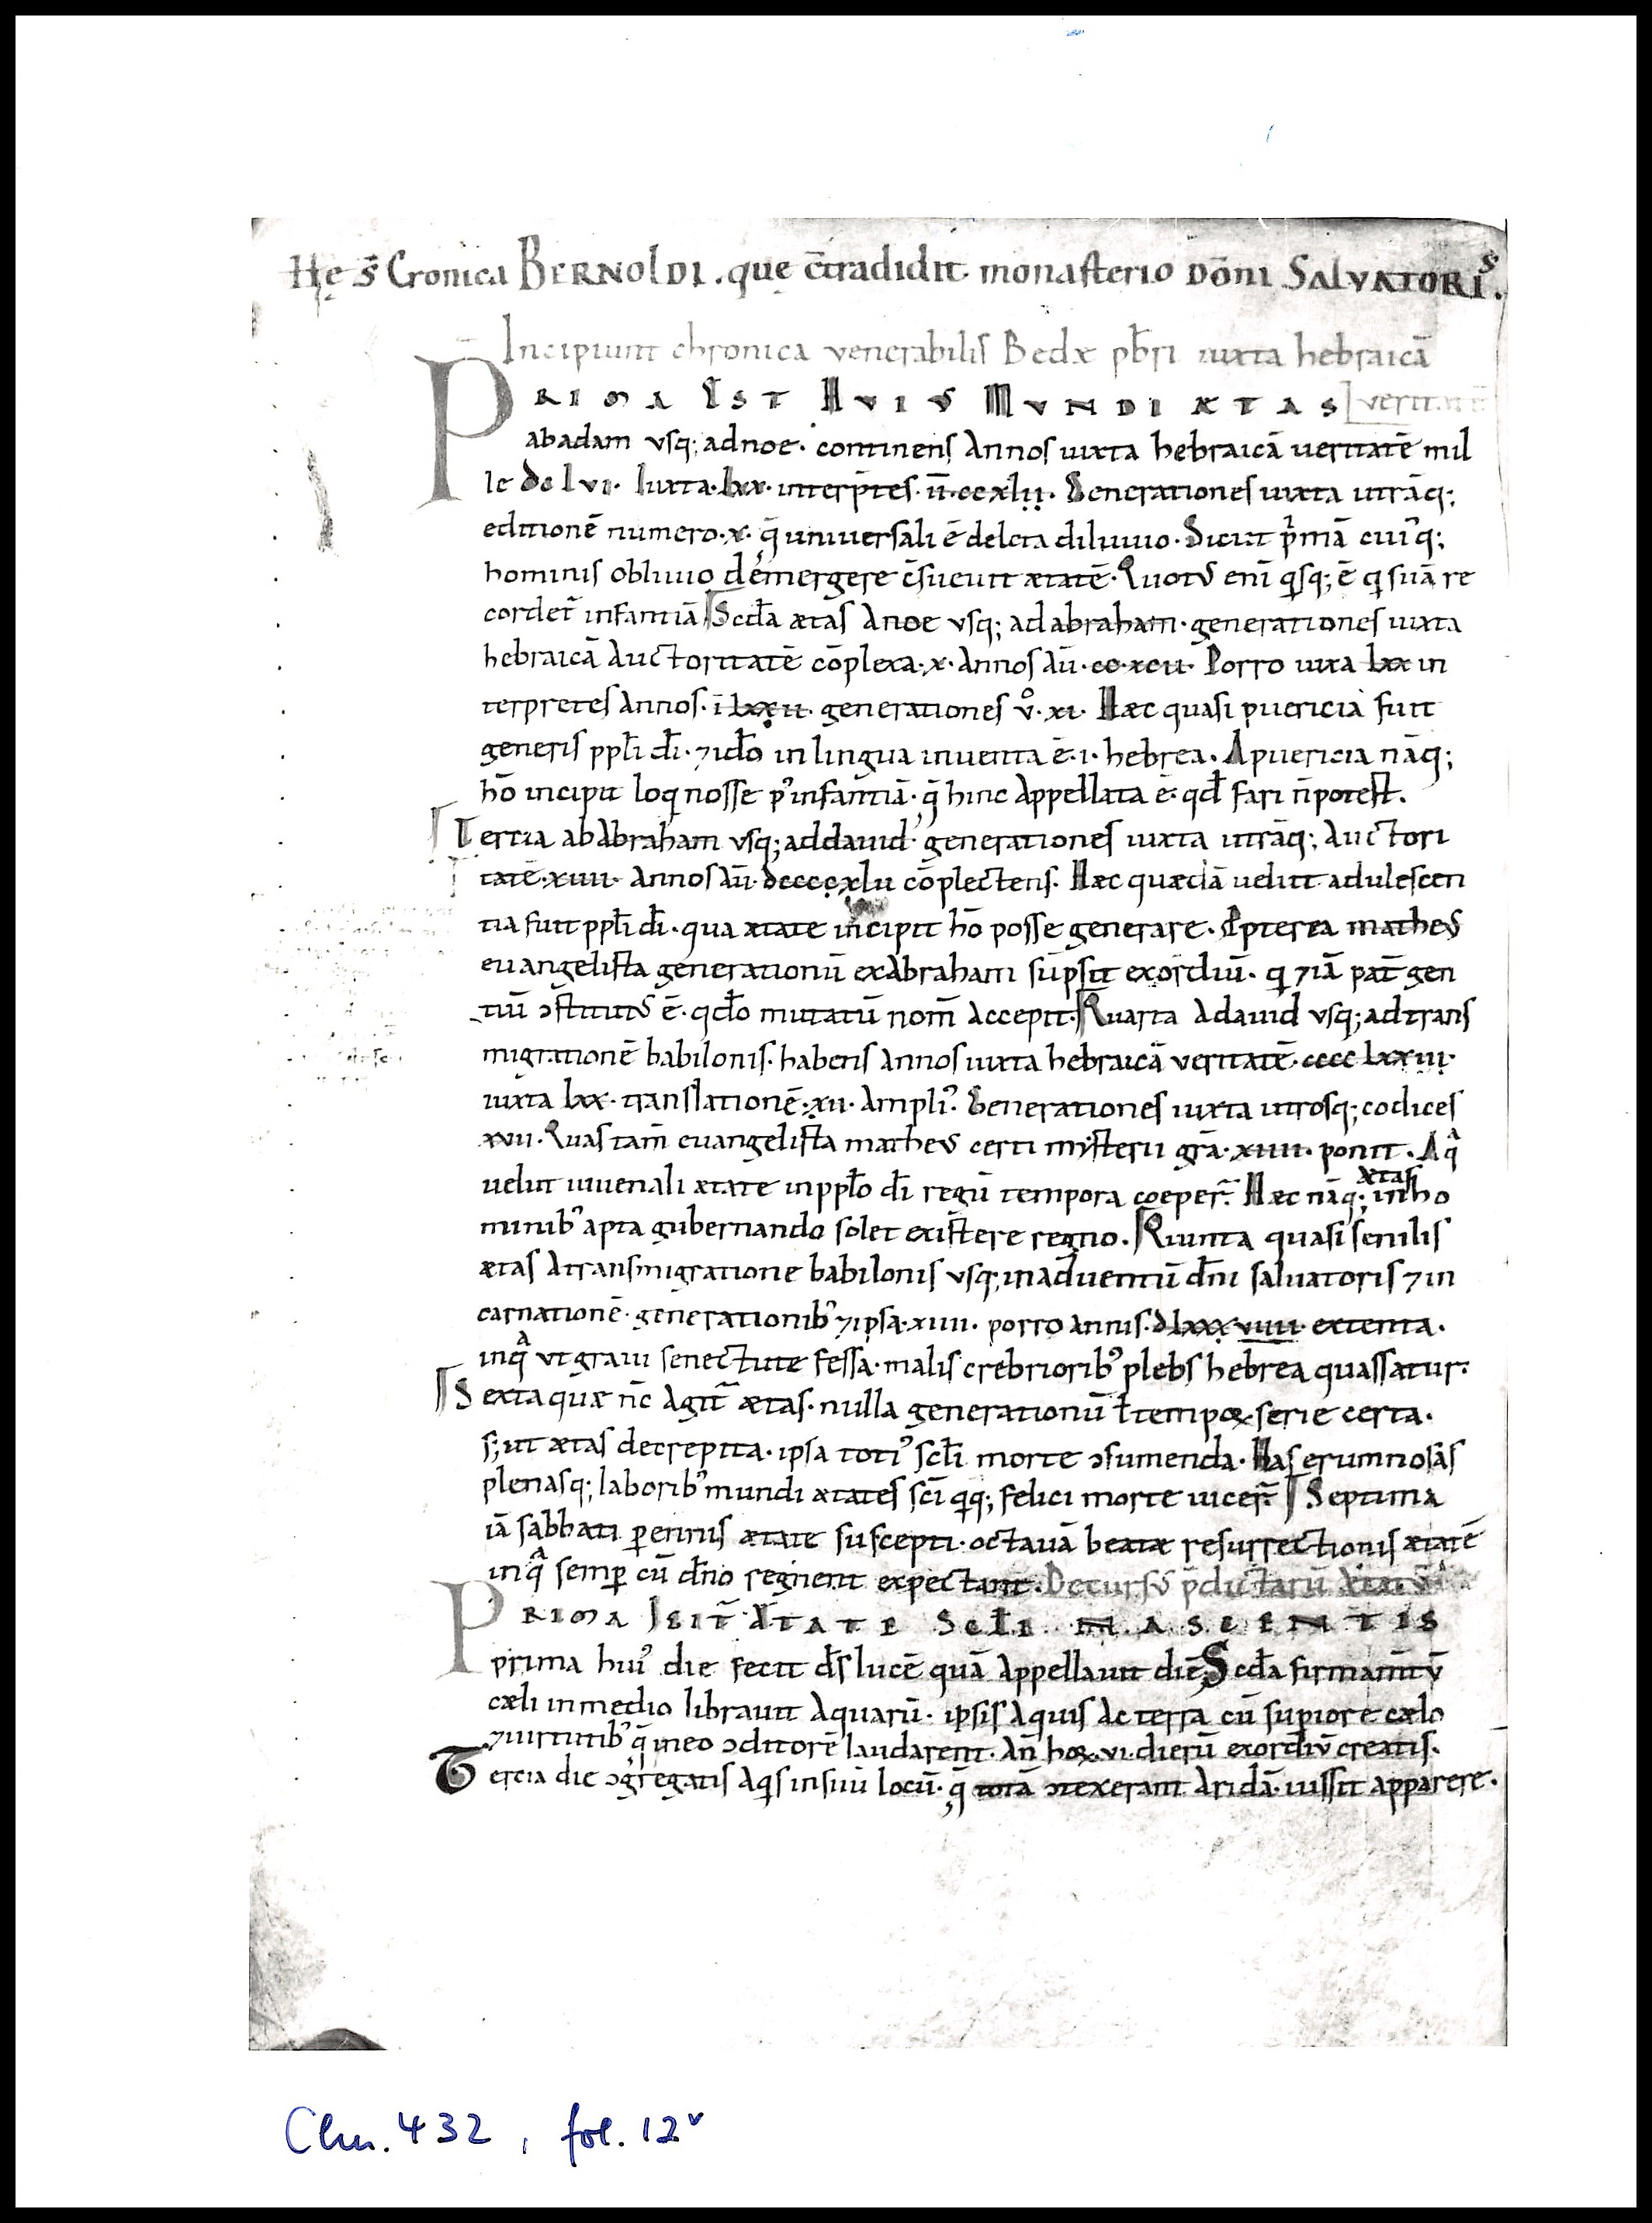 Hę s̄ Cronica BERNOLDI. quę c̄tradidit monasterio DŌNI SALVATORIS.
Incipiunt chronica venerabilis Bedæ pb̄ri iuxta hebraicā
PRIMA EST HVIVS MVNDI ÆTAS [veritatē
abadam vsq; adnoe. continens Annos iuxta hebraicā ueritatē mil
le dclvi. Iuxta lxx. interp̄tes. īī.ccxlii. Generationes iuxta utrāq;
editionē numero .x. q̄ uniuersali ē deleta diluuio. Sicut p̄mā cuiꝰq;
hominis obliuio demergere c̄sueuit ætatē. Quotꝰ eni̅ q̄sq; ē q̄ suā re
cordet̄ infantiā. Scd̄a ætas Anoe vsq; adabraham. generationes iuxta
hebraicā Auctoritatē cōplexa .x. Annos au̅. cc.xcii. Porro iuxa lxx in
terpretes Annos. ī lxxii. generationes v̊. xi. Hæc quasi puericia fuit
generis ppl̄i dī. ⁊idō in lingua inventa ē .i. hebrea. Apuericia nāq;
hō incipit loq nosse pꝰinfantiā. q̄ hinc Appellata ē. qd̄ fari n̄potest.
Tercia abAbraham vsq; addauid generationes iuxta utrāq; Auctori
tatē .xiiii. Annos au̅. dccccxlii cōplectens. Hæc quædā uelut adulescen
tia fuit ppl̄i dī. qua ætate incipit hō posse generare. Ꝓpterea matheꝰ
euangelista generationū exAbraham sūpsit exordiū. q ⁊iā pat̄ gen
tiū ɔstitutꝰ ē. qd̄o mutatū nom̄ Accepit. Quarta Adauid vsq; adtrans
migrationē babilonis. habens Annos iuxta hebraicā veritatē. cccc lxxiii.
iuxta lxx. translationē .xii. Ampliꝰ. Generationes iuxta utrosq; codices
xvii. Quas tam̄ euangelista matheꝰ certi mysterii gr̄a .xiiii. ponit. Aqͣ
uelut iuuenali ætate inppl̄o dī regū tempora coeper̄. Hæc nāq; ætas inho
minibꝰ apta gubernando solet existere regno. Quinta quasi senilis
ætas Atransmigratione babilonis vsq; inaduentū dn̄i saluatoris ⁊in
carnationē. generationibꝰ ⁊ipsa .xiiii. porro annis. dlxxx viiii. extenta.
inqͣ vt graui senectute fessa. malis crebrioribꝰ plebs hebrea quassatur.
Sexta quæ n̄c Agit̄ ætas. nulla generationū ł tempoꝝ serie certa.
s; ut ætas decrepita. ipsa totiꝰ scl̄i morte ɔsumenda. Has erumnosas
plenasq; laboribꝰ mundi ætates sc̄i qq; felici morte uicer̄. Septima
iā sabbati ꝑennis ætate suscepti. octauā beatæ resurrectionis ætatē
inqͣ semꝑ cū dn̄o regnent expectant. Decursꝰ p̄dictarū ætatū
PRIMA IGIT̄ ÆTATE SCL̄I NASCENTIS
prima huiꝰ die fecit ds̄ lucē quā Appellauit diē. Scd̄a firmam̄tū
cæli inmedio librauit Aquarū. ipsis Aquis Ac terra cū suꝑiore cælo
⁊uirtutibꝰ q̄ ineo ɔditorē laudarent. An̄ hoꝝ .vi. dierū exordiū creatis.
Tercia die ɔgregatis Aqs insuū locū. q̄ totā ɔtexerant Aridā. iussit apparere.
Clm. 432, fol. 12v